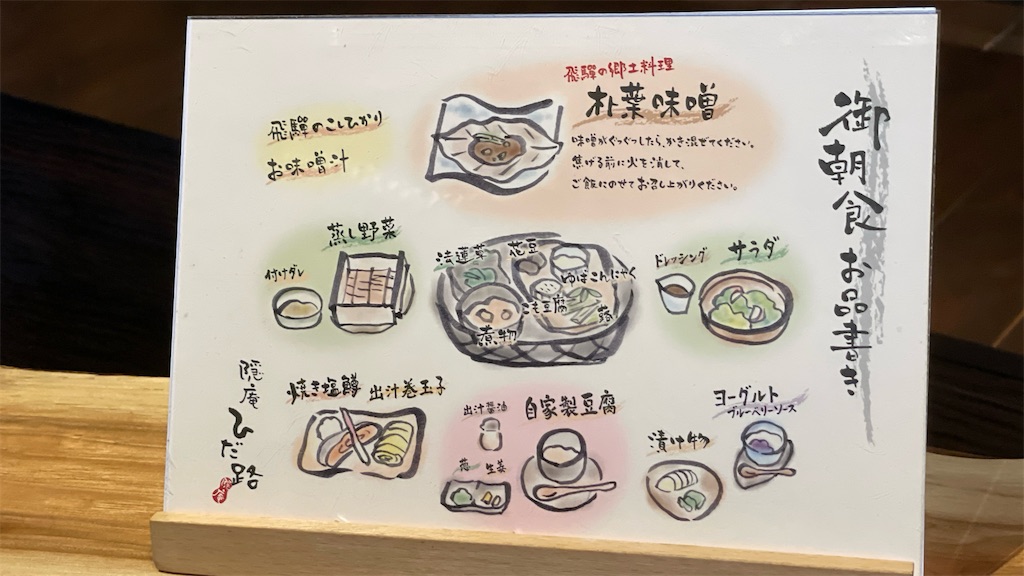 御朝食 お品書き
飛騨の郷土料理
朴葉味噌
味噌がぐつぐつしたら、かき混ぜてください。
焦げる前に火を消して、
ご飯にのせてお召し上がりください。
飛騨のこしひかり
お味噌汁
サラダ
ドレッシング
法蓮草
花豆
ゆばこんにゃく
こも豆腐
蕗
煮物
蒸し野菜
付けダレ
ヨーグルト
ブルーベリーソース
漬け物
自家製豆腐
出汁醤油
葱
生姜
出汁巻玉子
焼き塩鱒
隠庵
ひだ路